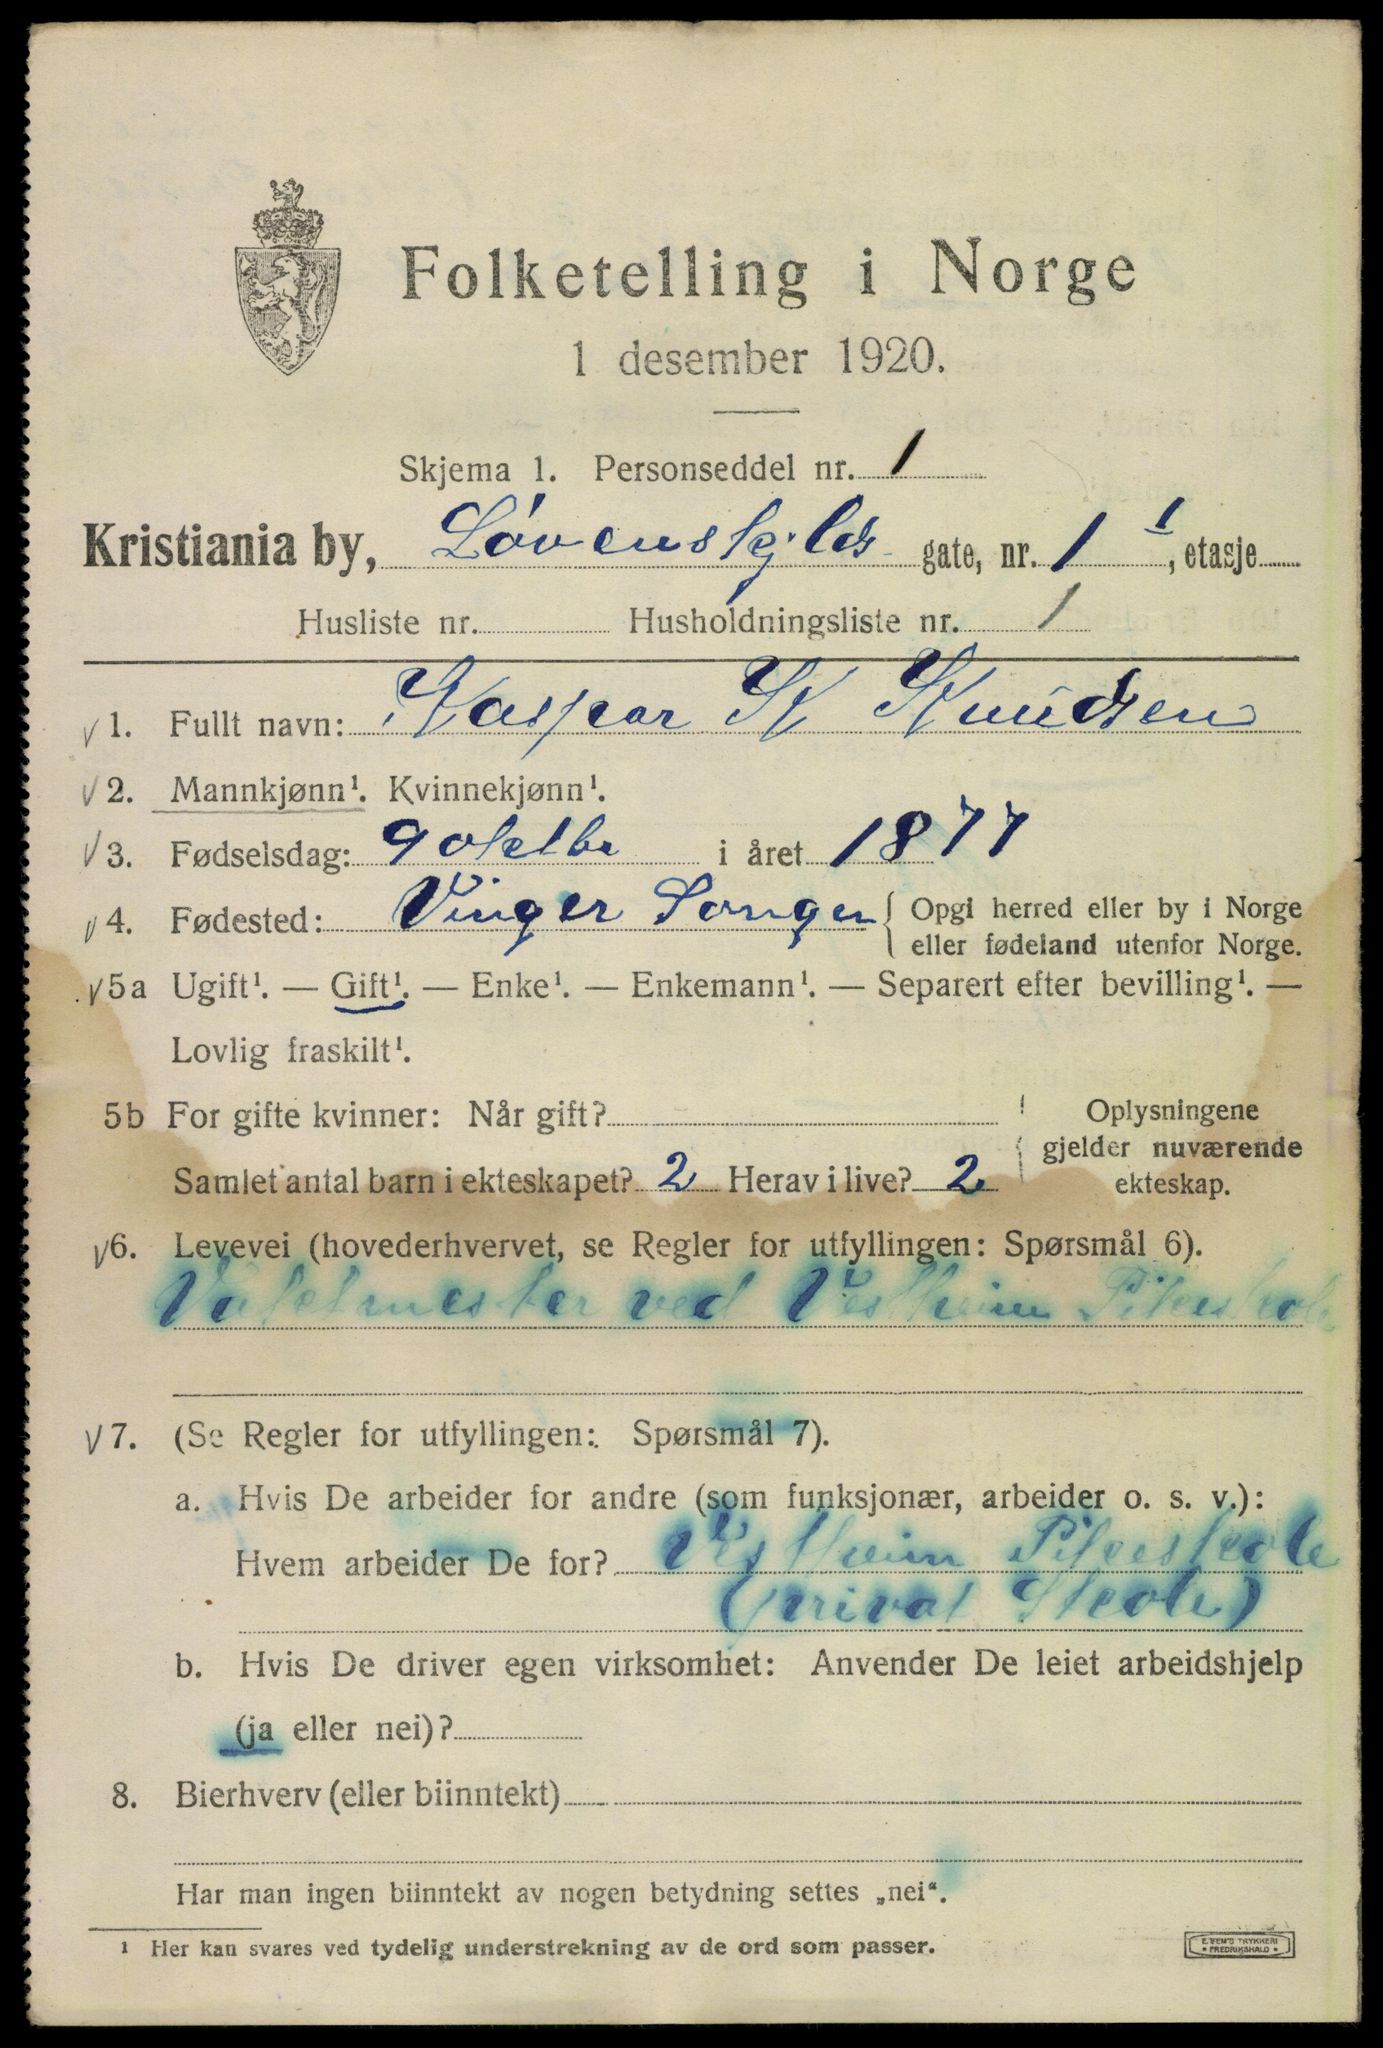 Folketelling i Norge
1 desember 1920.
Skjema 1. Personseddel nr. 1
Kristiania by, Løvenskjolds gate, nr. 1 1, etasje
Husliste nr. Husholdningsliste nr. 1
1. Fullt navn: Kaspar K Knudsen
2. Mannkjønn¹. Kvinnekjønn¹.
3. Fødselsdag: 9 oktbr i året 1877
4. Fødested: Vinger { Opgi herred eller by i Norge
eller fødeland utenfor Norge.
5a Ugift¹. — Gift¹. — Enke¹. — Enkemann¹. — Separert efter bevilling¹. —
Lovlig fraskilt¹.
5b For gifte kvinner: Når gift? Oplysningene
gjelder nuværende
Samlet antal barn i ekteskapet? 2 Herav i live? 2 ekteskap.
6. Levevei (hovederhvervet, se Regler for utfyllingen: Spørsmål 6).
Vaktmester ved Vestheim Pikeskole
7. (Se Regler for utfyllingen: Spørsmål 7).
a. Hvis De arbeider for andre (som funksjonær, arbeider o. s. v.):
Hvem arbeider De for? Vestheim Pikeskole
(privat Skole)
b. Hvis De driver egen virksomhet: Anvender De leiet arbeidshjelp
(ja eller nei)?
8. Bierhverv (eller biinntekt)
Har man ingen biinntekt av nogen betydning settes „nei“.
¹ Her kan svares ved tydelig understrekning av de ord som passer.
E. VEM'S TRYKKERI
• FREDRIKSHALD •